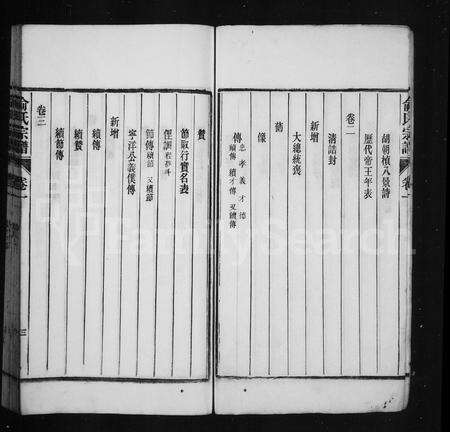 俞氏宗譜
卷一
胡朝楨八景詩
歷代帝王年表
卷二
清誥封
新增
大總統褒
像
傳 忠 孝 義 才 德
續傳 續才傳 又續傳
贊
節取行實名表
節傳 續節 又續節
寧洋公義僕傳
新增
續傳
續贊
續節傳
卷三
俞氏宗譜
卷一
三
FamilySearch